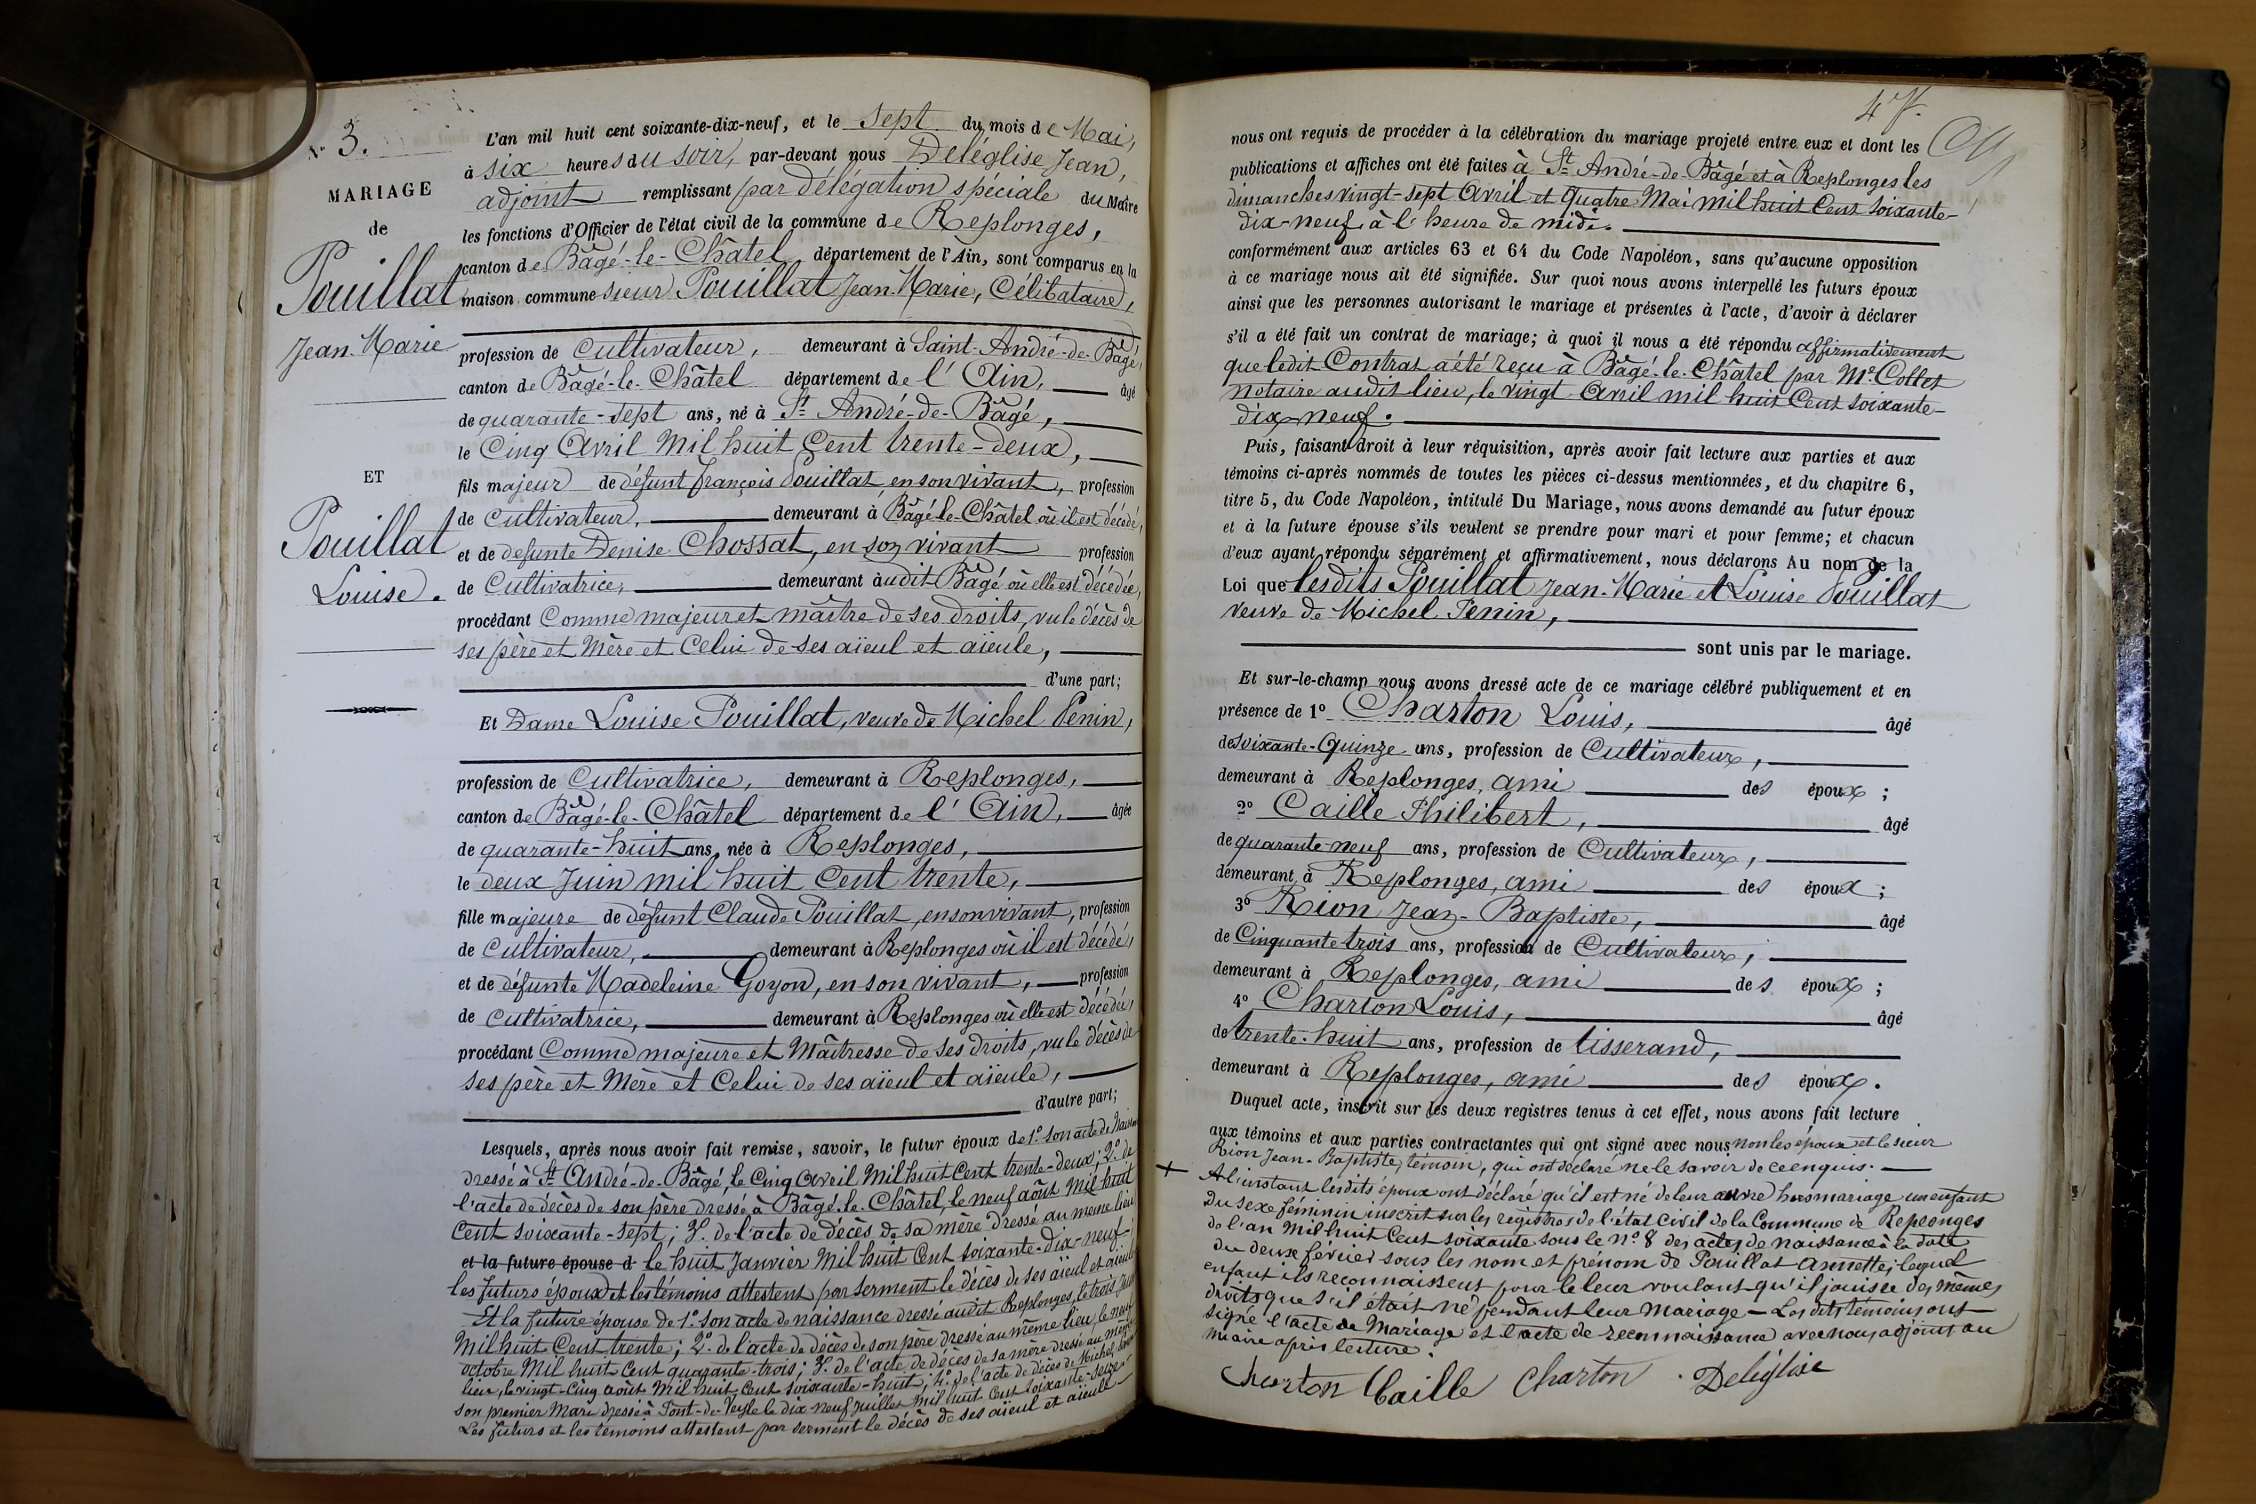 N° 3.
MARIAGE
de
Pouillat
Jean-Marie
ET
Pouillat
Louise.
L'an mil huit cent soixante-dix-neuf, et le sept du mois de Mai,
à six heures du soir, par-devant nous Deléglise Jean,
adjoint remplissant par délégation spéciale du Maire
les fonctions d'Officier de l'état civil de la commune de Replonges,
canton de Bâgé-le-Châtel, département de l'Ain, sont comparus en la
maison commune sieur Pouillat Jean-Marie, Célibataire,
profession de Cultivateur, demeurant à Saint-André-de-Bâgé,
canton de Bâgé-le-Châtel département de l'Ain, âgé
de quarante-sept ans, né à St André-de-Bâgé,
le Cinq Avril Mil huit Cent trente-deux,
fils majeur de défunt François Pouillat en son vivant, profession
de Cultivateur, demeurant à Bâgé-le-Châtel où il est décédé,
et de defunte Denise Chossat, en son vivant profession
de Cultivatrice, demeurant audit Bâgé où elle est décédée,
procédant Comme majeur et maître de ses droits, vu le décès de
ses père et Mère et Celui de ses aïeul et aïeule,
d'une part;
Et Dame Louise Pouillat, veuve de Michel Penin,
profession de Cultivatrice, demeurant à Replonges,
canton de Bâgé-le-Châtel département de l'Ain, âgée
de quarante-huit ans, née à Replonges,
le deux Juin mil huit Cent trente,
fille majeure de défunt Claude Pouillat, en son vivant, profession
de Cultivateur, demeurant à Replonges où il est décédé,
et de défunte Madeleine Goyon, en son vivant, profession
de cultivatrice, demeurant à Replonges où elle est décédée,
procédant Comme majeure et Maîtresse de ses droits, vu le décès de
ses père et Mère et Celui de ses aïeul et aïeule,
d'autre part;
Lesquels, après nous avoir fait remise, savoir, le futur époux de 1° son acte de Naissance
dressé à St André-de-Bâgé, le Cinq Avril Mil huit Cent trente-deux; 2° de
l'acte de décès de son père dressé à Bâgé-le-Châtel, le neuf août Mil huit
Cent soixante-sept; 3° de l'acte de décès de sa mère dressé au même lieu
et la future épouse d le huit Janvier Mil huit Cent soixante-dix-neuf-
les futurs époux et les témoins attestent par serment le décès de ses aïeul et aïeule
Et la future épouse de 1° son acte de naissance dressé audit Replonges, le trois Juin
Mil huit Cent trente; 2° de l'acte de décès de son père dressé au même lieu, le neuf
octobre Mil huit Cent quarante-trois; 3° de l'acte de décès de sa mère dressé au même
lieu, le vingt-Cinq août Mil huit Cent soixante-huit; 4° de l'acte de décès de Michel Penin
son premier Mari dressé à Pont-de-Veyle le dix-neuf Juillet Mil huit Cent soixante-seize-
Les futurs et les témoins attestent par serment le décès de ses aïeul et aïeule-
47.
nous ont requis de procéder à la célébration du mariage projeté entre eux et dont les
publications et affiches ont été faites à St André-de-Bâgé et à Replonges les
dimanches vingt-sept Avril et quatre Mai mil huit Cent soixante-
dix-neuf à l'heure de midi.
conformément aux articles 63 et 64 du Code Napoléon, sans qu'aucune opposition
à ce mariage nous ait été signifiée. Sur quoi nous avons interpellé les futurs époux
ainsi que les personnes autorisant le mariage et présentes à l'acte, d'avoir à déclarer
s'il a été fait un contrat de mariage; à quoi il nous a été répondu affirmativement
que ledit Contrat a été reçu à Bâgé-le-Châtel par Me Collet
notaire audit lieu, le vingt Avril mil huit Cent soixante-
dix-neuf.
Puis, faisant droit à leur réquisition, après avoir fait lecture aux parties et aux
témoins ci-après nommés de toutes les pièces ci-dessus mentionnées, et du chapitre 6,
titre 5, du Code Napoléon, intitulé Du Mariage, nous avons demandé au futur époux
et à la future épouse s'ils veulent se prendre pour mari et pour femme; et chacun
d'eux ayant répondu séparément et affirmativement, nous déclarons Au nom de la
Loi que lesdits Pouillat Jean-Marie et Louise Pouillat
veuve de Michel Penin,
sont unis par le mariage.
Et sur-le-champ nous avons dressé acte de ce mariage célébré publiquement et en
présence de 1° Charton Louis, âgé
de soixante-quinze ans, profession de Cultivateur,
demeurant à Replonges, ami des époux;
2° Caille Philibert, âgé
de quarante-neuf ans, profession de Cultivateur,
demeurant à Replonges, ami des époux;
3° Rion Jean-Baptiste, âgé
de Cinquante trois ans, profession de Cultivateur,
demeurant à Replonges, ami des époux;
4° Charton Louis, âgé
de trente-huit ans, profession de tisserand,
demeurant à Replonges, ami des époux.
Duquel acte, inscrit sur les deux registres tenus à cet effet, nous avons fait lecture
aux témoins et aux parties contractantes qui ont signé avec nous non les époux et le sieur
Rion Jean-Baptiste, témoin, qui ont déclaré ne le savoir de ce enquis.
+ A l'instant lesdits époux ont déclaré qu'il est né de leur œuvre hors mariage un enfant
du sexe féminin inscrit sur les registres de l'état civil de la Commune de Replonges
de l'an Mil huit Cent soixante sous le n° 8 des actes de naissance à la date
du deux février sous les nom et prénom de Pouillat Annette, lequel
enfant ils reconnaissent pour le leur voulant qu'il jouisse des mêmes
droits que s'il était né pendant leur Mariage - Les dits témoins ont
signé l'acte de Mariage et l'acte de reconnaissance avec nous adjoint au
maire après lecture.
Charton Caille Charton Deléglise